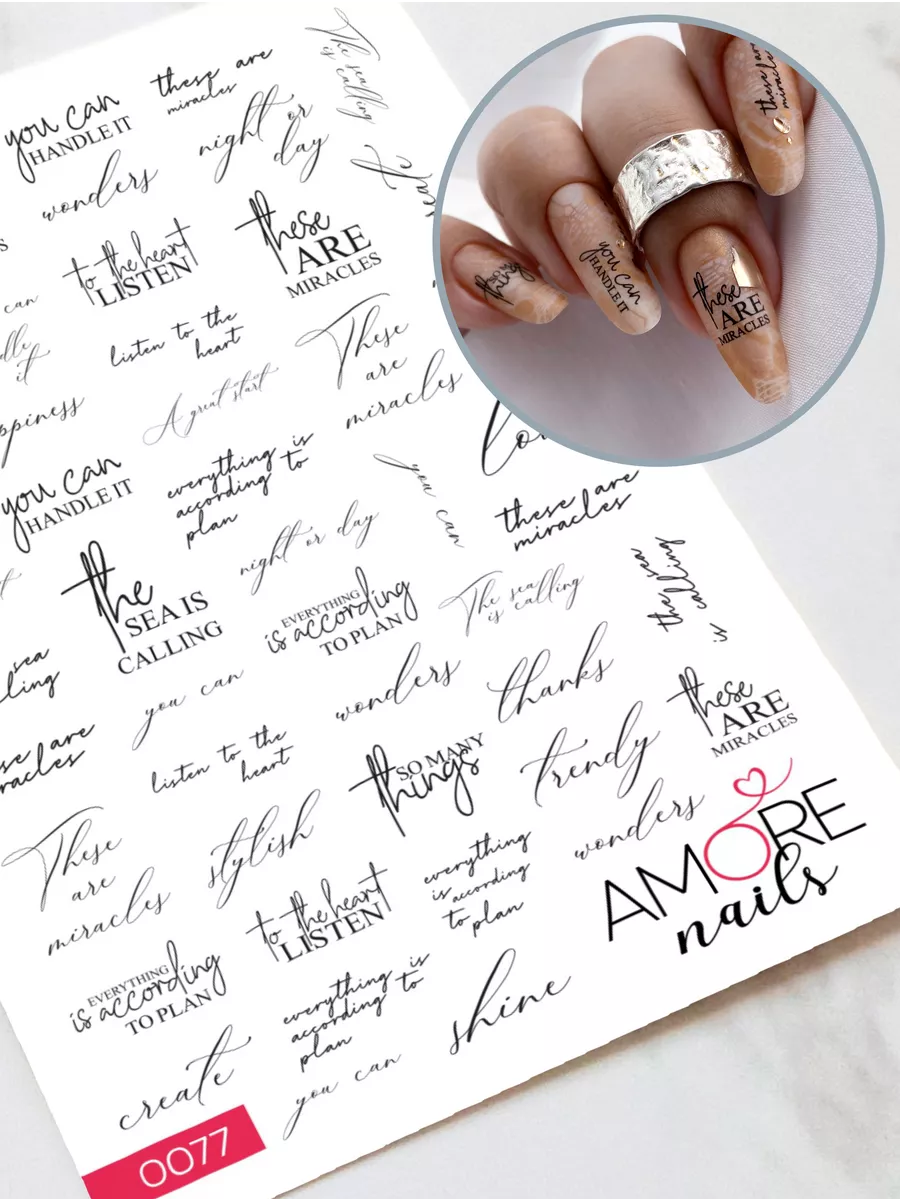 The sea
is calling
these are
miracles
you can
HANDLE IT
night or
day
wonders
to the heart
LISTEN
these
ARE
MIRACLES
can
it
listen to the
heart
These
are
miracles
A great start
you can
HANDLE IT
everything is
according to
plan
you can
these are
miracles
night or day
the
SEA IS
CALLING
EVERYTHING
is according
TO PLAN
The sea
is calling
the sea
is calling
sea
you can
wonders
thanks
these
ARE
MIRACLES
are
listen to the
heart
SO MANY
things
trendy
These
are
miracles
stylish
everything
is according
to plan
wonders
to the heart
LISTEN
EVERYTHING
is according
TO PLAN
everything is
according to
plan
shine
create
you can
AMORE
nails
0077
you can
HANDLE IT
these
ARE
MIRACLES
these are
miracles